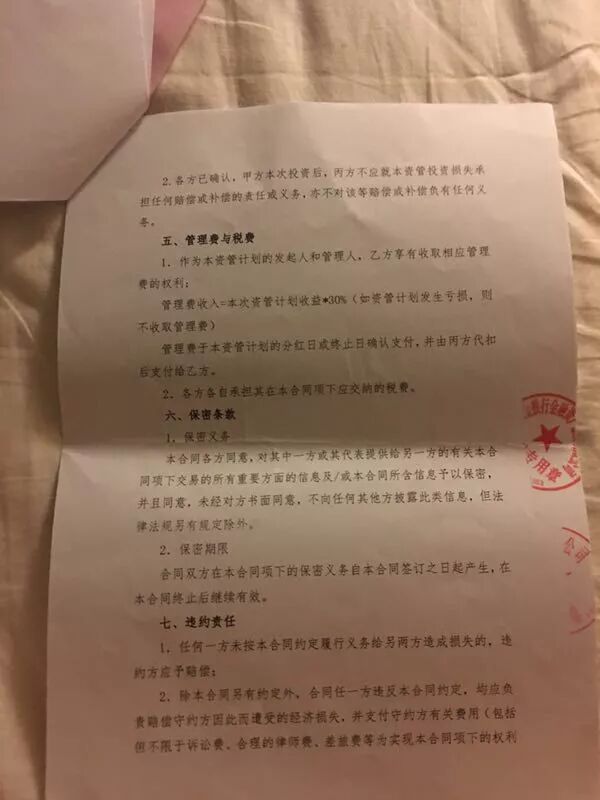 2.各方已确认,甲方本次投资后,丙方不应就本资管投资损失承
担任何赔偿或补偿的责任或义务,亦不对该等赔偿或补偿负有任何义
务。
五、管理费与税费
1.作为本资管计划的发起人和管理人,乙方享有收取相应管理
费的权利;
管理费收入=本次资管计划收益*30%(如资管计划发生亏损,则
不收取管理费)
管理费于本资管计划的分红日或终止日确认支付,并由丙方代扣
后支付给乙方。
2.各方各自承担其在本合同项下应交纳的税费。
六、保密条款
1.保密义务
本合同各方同意,对其中一方或其代表提供给另一方的有关本合
同项下交易的所有重要方面的信息及/或本合同所含信息予以保密,
并且同意,未经对方书面同意,不向任何其他方披露此类信息,但法
律法规另有规定除外。
2.保密期限
合同双方在本合同项下的保密义务自本合同签订之日起产生,在
本合同终止后继续有效。
七、违约责任
1.任何一方未按本合同约定履行义务给另两方造成损失的,违
约方应予赔偿;
2.除本合同另有约定外,合同任一方违反本合同约定,均应负
责赔偿守约方因此而遭受的经济损失,并支付守约方有关费用(包括
但不限于诉讼费、合理的律师费、差旅费等为实现本合同项下的权利
银行金融
专用章
公司